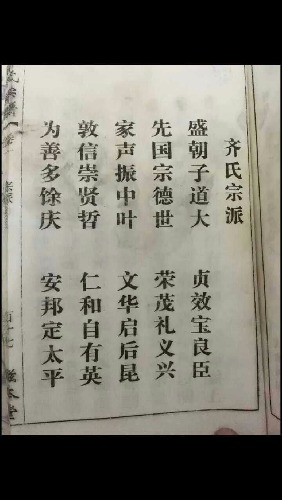 齐氏宗派
盛朝子道大 贞效宝良臣
先国宗德世 荣茂礼义兴
家声振中叶 文华启后昆
敦信崇贤哲 仁和自有英
为善多馀庆 安邦定太平